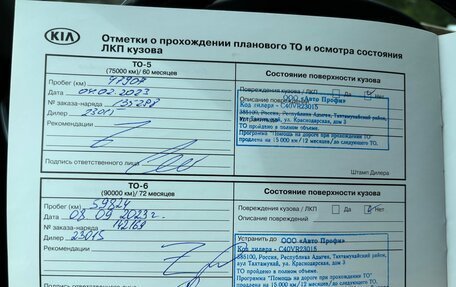 KIA
Отметки о прохождении планового ТО и осмотра состояния
ЛКП кузова
ТО-5
(75000 км)/ 60 месяцев
Состояние поверхности кузова
Пробег (км)
Дата 04.02.2023
№ заказа-наряда
Дилер 23015
Рекомендации
Подпись ответственного лица
Повреждения кузова / ЛКП: Да Нет
Описание повреждений
ООО «Авто Профи»
Код дилера - C40VR23015
385100, Россия, Республика Адыгея, Тахтамукайский район,
аул Тахтамукай, ул. Краснодарская, дом 3
ТО пройдено в полном объеме.
Программа "Помощь на дороге при прохождении ТО"
продлена на 15 000 км/12 месяцев/до следующего ТО.
Штамп Дилера
ТО-6
(90000 км)/ 72 месяцев
Состояние поверхности кузова
Пробег (км) 59824
Дата 08.09 2023г.
№ заказа-наряда 142169
Дилер 23015
Рекомендации
Повреждения кузова / ЛКП: Да Нет
Описание повреждений
Устранить до
ООО «Авто Профи»
Код дилера - C40VR23015
385100, Россия, Республика Адыгея, Тахтамукайский район,
аул Тахтамукай, ул. Краснодарская, дом 3
ТО пройдено в полном объеме.
Программа "Помощь на дороге при прохождении ТО"
продлена на 15 000 км/12 месяцев/до следующего ТО.